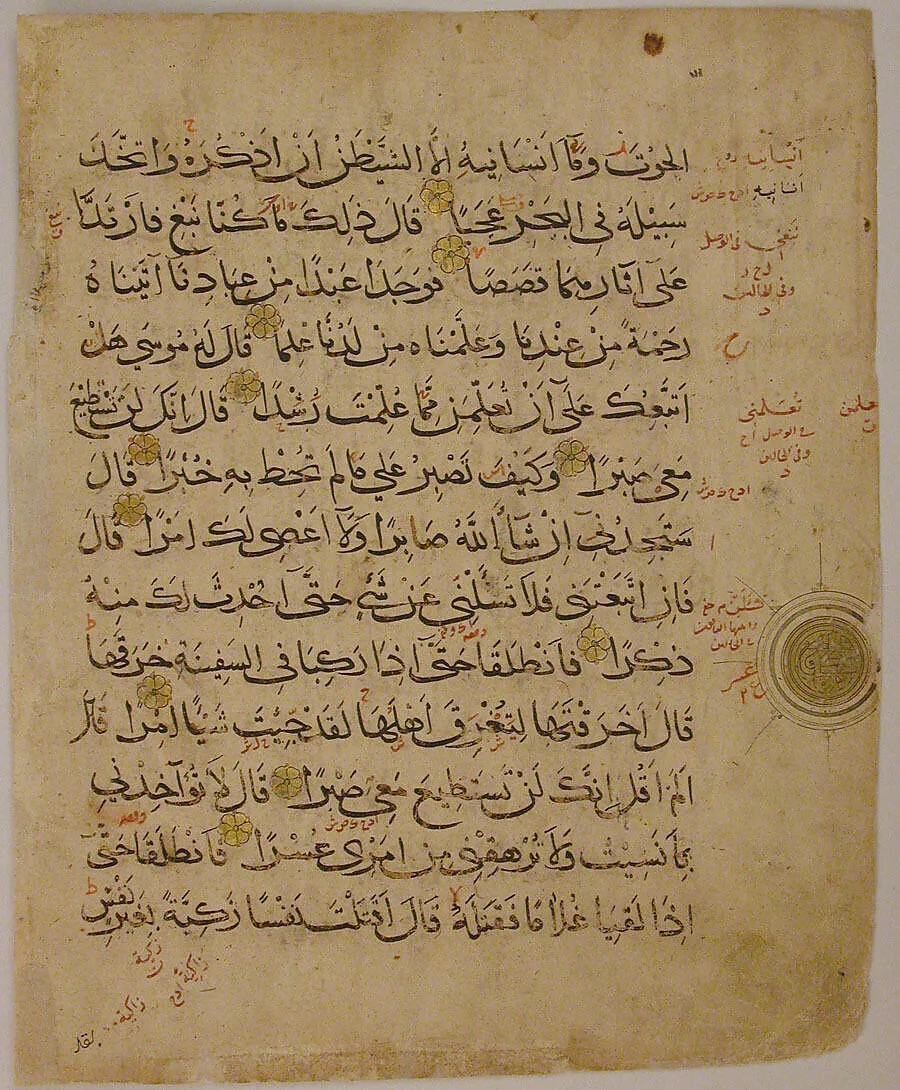 الحوت وما انسانيه الا الشيطن ان اذكره واتخذ
سبيله في البحر عجبا قال ذلك ما كنا نبغ فارتدا
على اثارهما قصصا فوجدا عبدا من عبادنا آتيناه
رحمة من عندنا وعلمناه من لدنا علما قال له موسى هل
اتبعك على ان تعلمن مما علمت رشدا قال انك لن تستطيع
معي صبرا وكيف تصبر على ما لم تحط به خبرا قال
ستجدني ان شآ الله صابرا ولا اعصي لك امرا قال
فان اتبعتني فلا تسلني عن شي حتى احدث لك منه
ذكرا فانطلقا حتى اذا ركبا في السفينة خرقها
قال اخرقتها لتغرق اهلها لقد جيت شيا امرا قال
الم اقل انك لن تستطيع معي صبرا قال لا تؤاخذني
بما نسيت ولا ترهقني من امري عسرا فانطلقا حتى
اذا لقيا غلاما فقتله قال اقتلت نفسا زكية بغير نفس
انسانيه
نبغي في الوصل
وفي الحالين
تعلمني
في الوصل
وفي الحالين
عشر
زكية
زاكية
زاكية
لقد